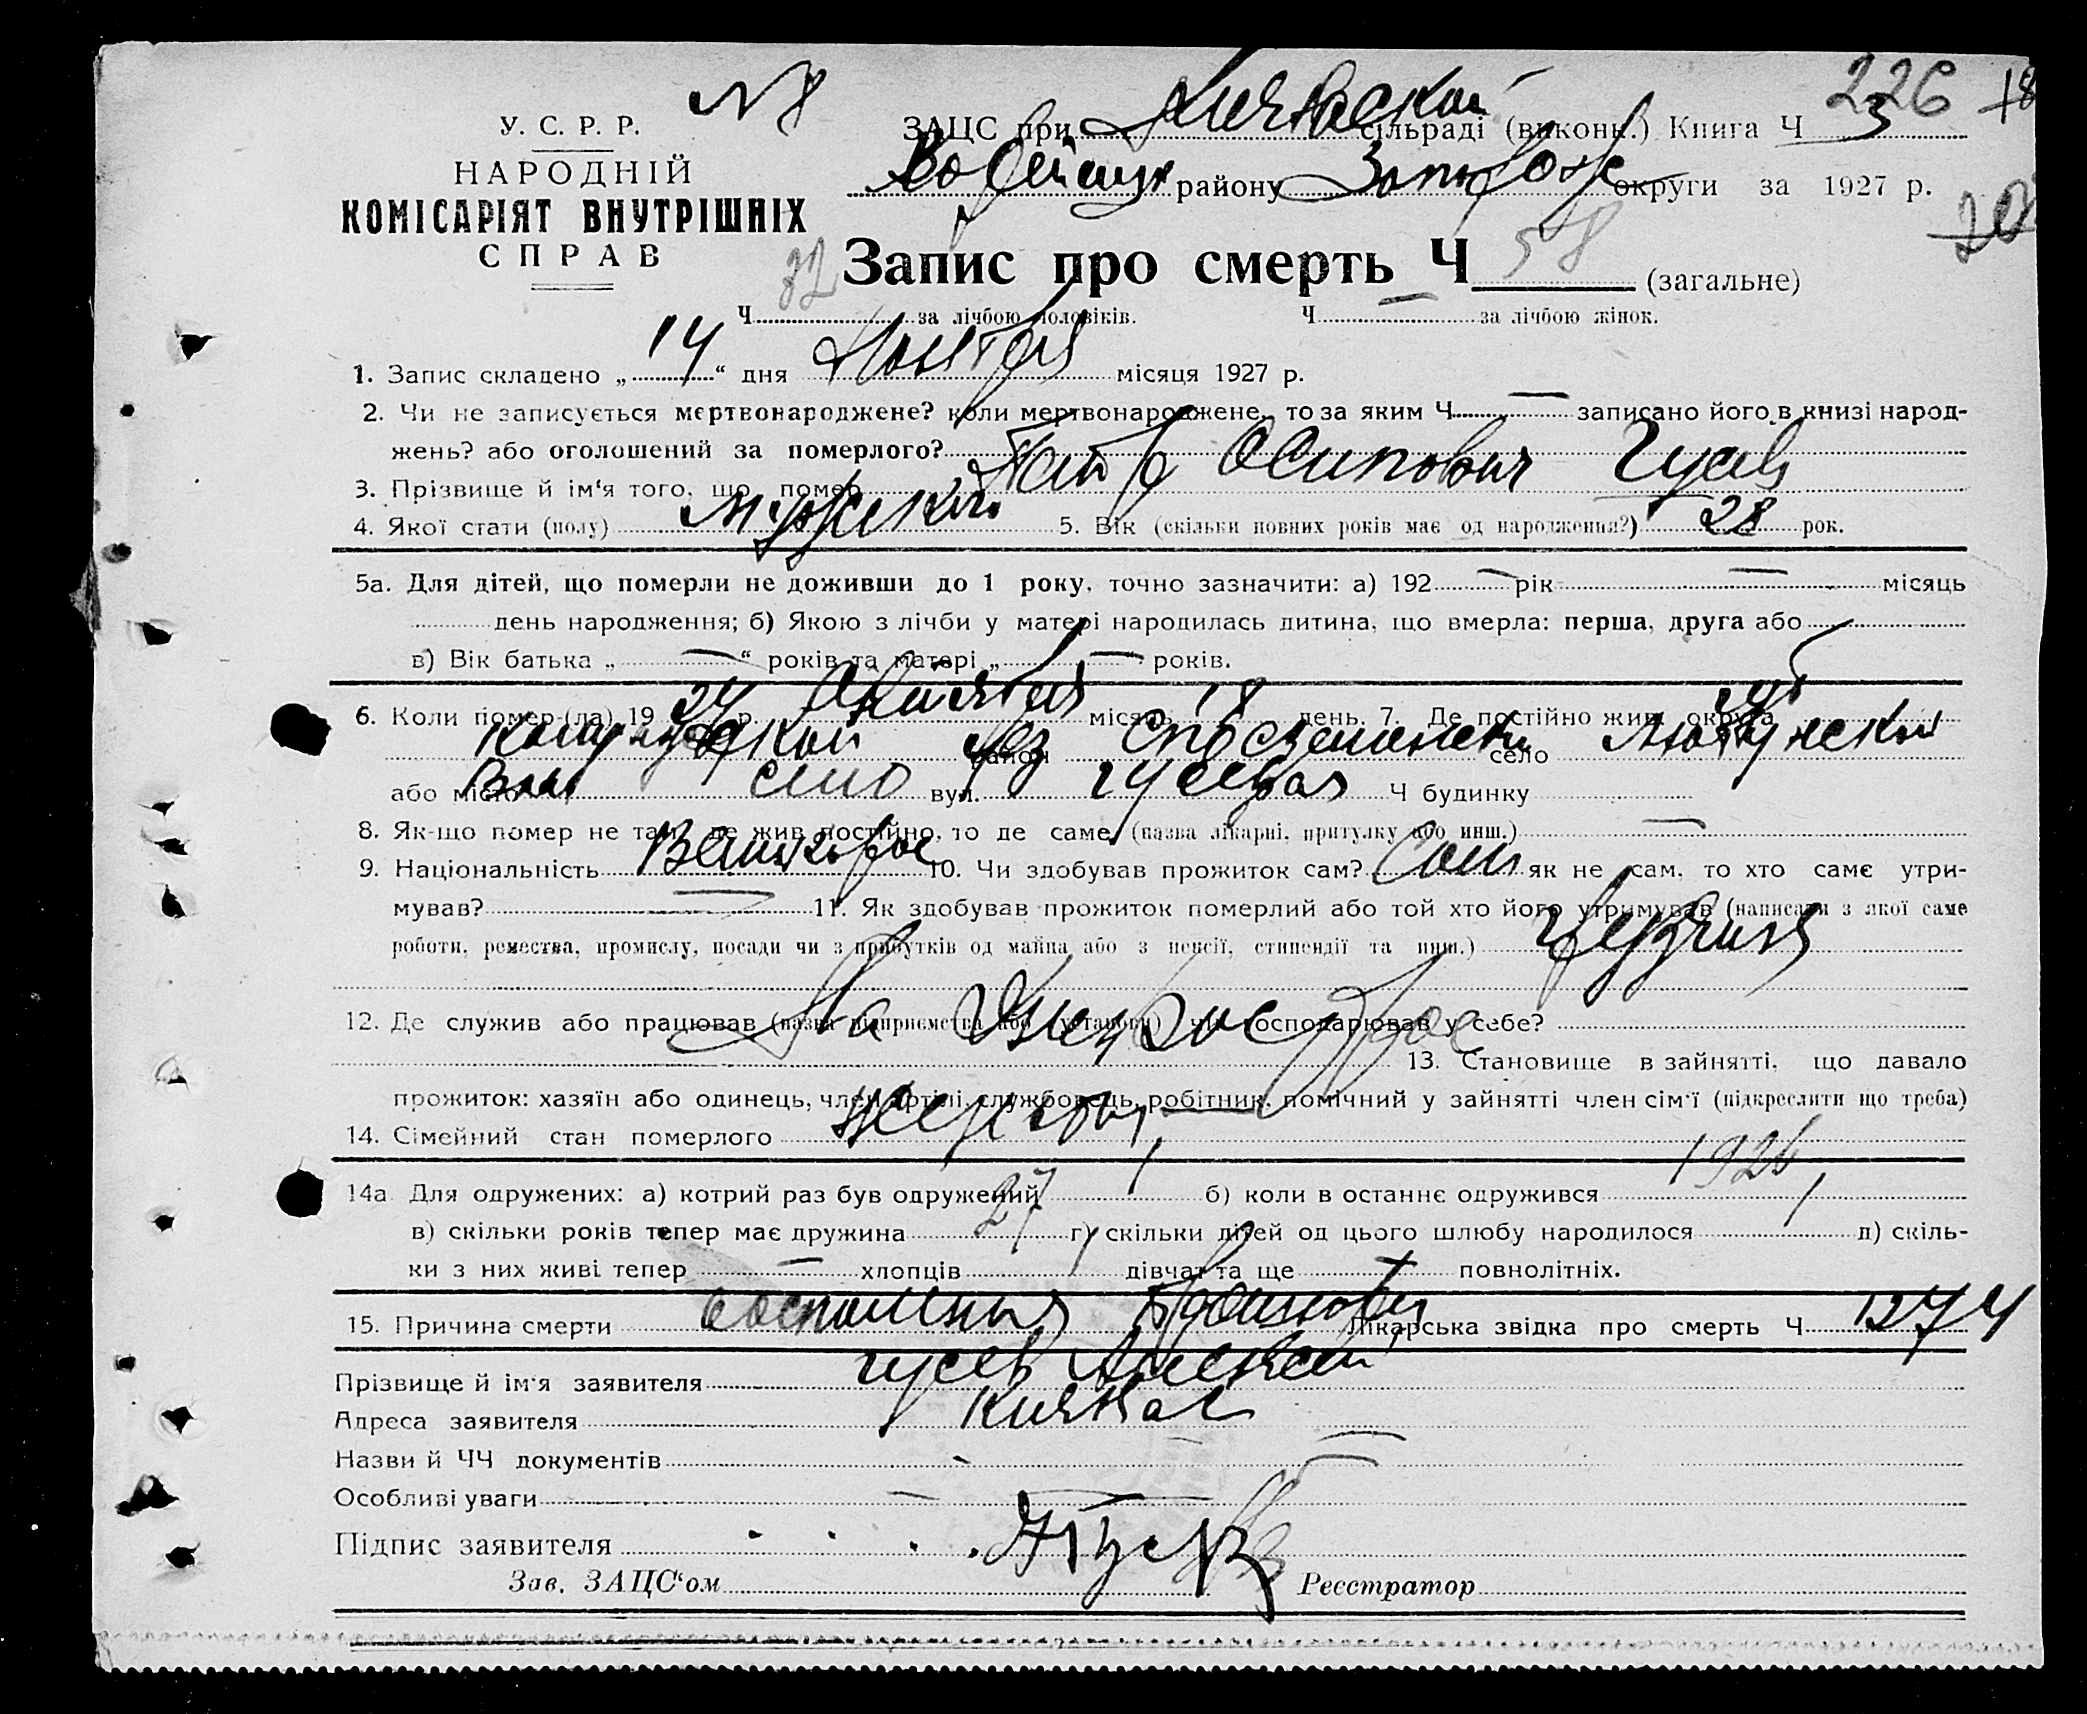 № 8
226
У. С. Р. Р.
ЗАЦС при Кичкаской сільраді (виконк.) Книга Ч 3
НАРОДНІЙ
району Запорож округи за 1927 р.
КОМІСАРІЯТ ВНУТРІШНІХ
СПРАВ
32 Запис про смерть Ч 58 (загальне)
Ч за лічбою чоловіків. Ч — за лічбою жінок.
1. Запис складено „ 14 “ дня місяця 1927 р.
2. Чи не записується мертвонароджене? коли мертвонароджене, то за яким Ч — записано його в книзі народ-
жень? або оголошений за померлого?
3. Прізвище й ім‘я того, що помер Петр Осипович Гусев
4. Якої стати (полу) мужской 5. Вік (скільки повних років має од народження?) 28 рок.
5а. Для дітей, що померли не доживши до 1 року, точно зазначити: а) 192 — рік — місяць
день народження; б) Якою з лічби у матері народилась дитина, що вмерла: перша, друга або
в) Вік батька „ — “ років та матері „ — “ років.
6. Коли помер (ла) 19 27 р. Октября місяць 18 день. 7. Де постійно жив: округа
район село
або місто село вул. Ч будинку
8. Як-що помер не там, де жив постійно, то де саме (назва лікарні, притулку або инш.) —
9. Національність Великорос 10. Чи здобував прожиток сам? Сам як не сам, то хто саме утри-
мував? — 11. Як здобував прожиток померлий або той хто його утримував (написати з якої саме
роботи, ремества, промислу, посади чи з прибутків од майна або з пенсії, стипендії та инш.)
12. Де служив або працював (назва підприємства або установи) чи господарював у себе? На Днепрострое
13. Становище в зайнятті, що давало
прожиток: хазяїн або одинець, член артілі, службовець, робітник, помічний у зайнятті член сім‘ї (підкреслити що треба)
14. Сімейний стан померлого женатый
14а Для одружених: а) котрий раз був одружений 1 б) коли в останнє одружився 1926
в) скільки років тепер має дружина 27 г) скільки дітей од цього шлюбу народилося 1 д) скіль-
ки з них живі тепер — хлопців 1 дівчат та ще — повнолітніх.
15. Причина смерти Лікарська звідка про смерть Ч 1274
Прізвище й ім‘я заявителя Гусев Алексей
Адреса заявителя Кичкас
Назви й ЧЧ документів —
Особливі уваги —
Підпис заявителя
Зав. ЗАЦС‘ом Реєстратор